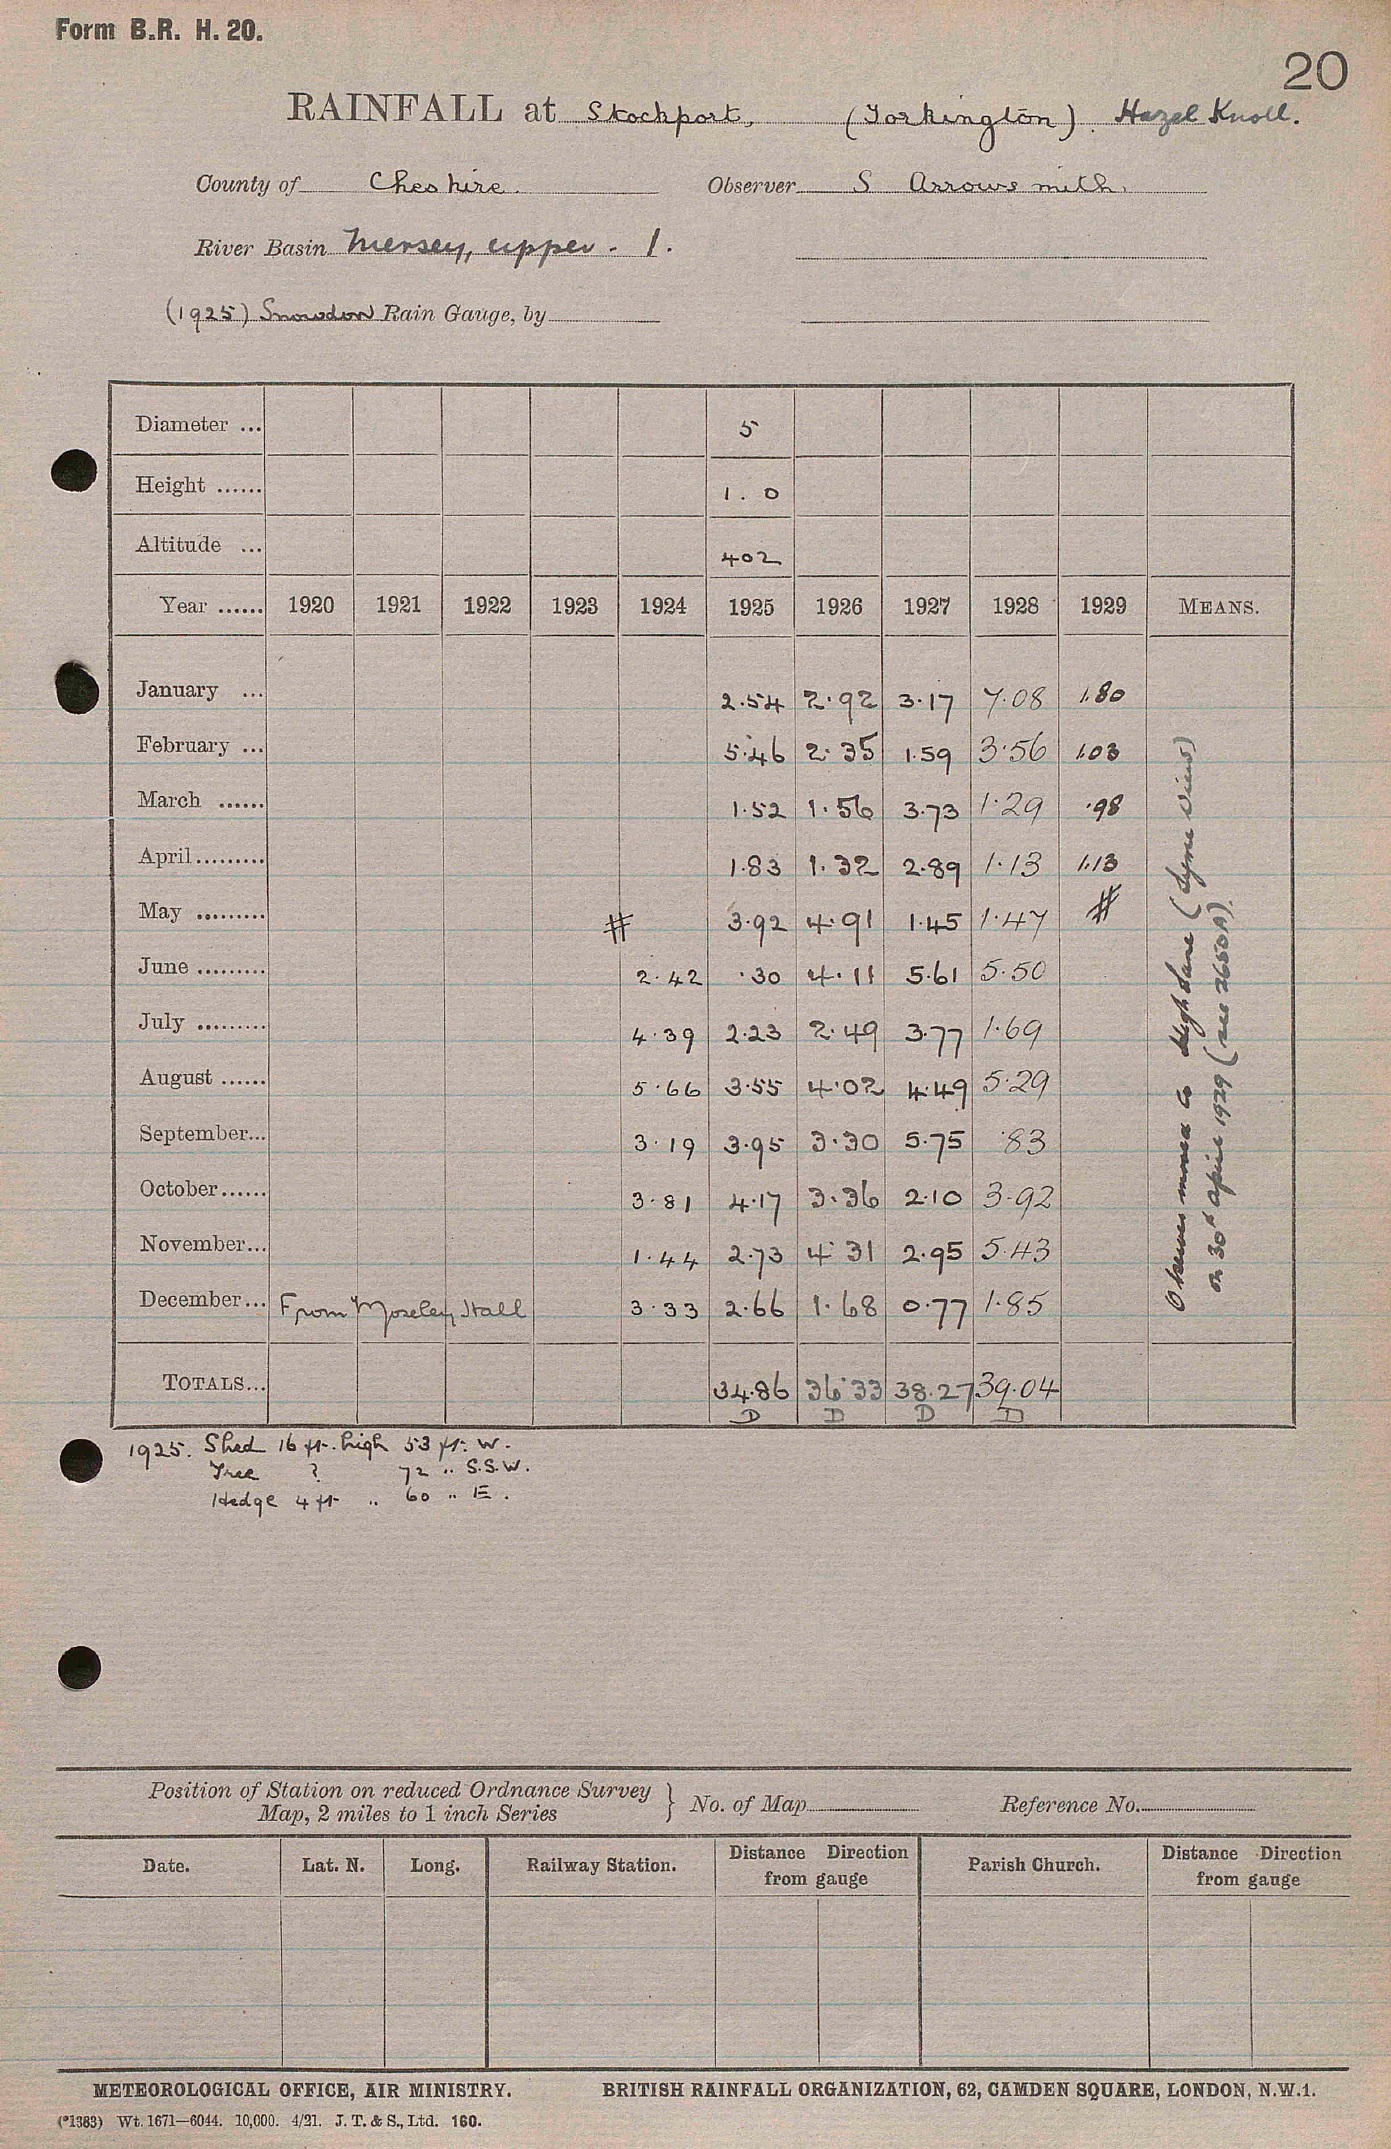 Form B.R. H. 20.
20
RAINFALL at Stockport, (Torkington). Hazel Knoll.
County of Cheshire. Observer S Arrowsmith.
River Basin Mersey, upper. 1.
(1925) Snowdon Rain Gauge, by
Diameter ... 5
Height ...... 1.0
Altitude ... 402
Year ...... 1920 1921 1922 1923 1924 1925 1926 1927 1928 1929 MEANS.
January ... 2.54 2.92 3.17 7.08 1.80
February ... 5.46 2.35 1.59 3.56 1.03
March ...... 1.52 1.56 3.73 1.29 .98
April......... 1.83 1.32 2.89 1.13 1.13
May ......... # 3.92 4.91 1.45 1.47 #
June ......... 2.42 .30 4.11 5.61 5.50
July ......... 4.39 2.23 2.49 3.77 1.69
August ...... 5.66 3.55 4.02 4.49 5.29
September... 3.19 3.95 3.30 5.75 .83
October...... 3.81 4.17 3.36 2.10 3.92
November... 1.44 2.73 4.31 2.95 5.43
December... From Moseley Hall 3.33 2.66 1.68 0.77 1.85
TOTALS... 34.86 36.33 38.27 39.04
D D D D
Observer moved to High Lane (Lyme View)
on 30th April 1929 (see 2650A).
1925. Shed 16 ft. high 53 ft. W.
Tree ? 72 " S.S.W.
Hedge 4 ft " 60 " E.
Position of Station on reduced Ordnance Survey
Map, 2 miles to 1 inch Series } No. of Map Reference No.
Date. Lat. N. Long. Railway Station. Distance Direction from gauge Parish Church. Distance Direction from gauge
METEOROLOGICAL OFFICE, AIR MINISTRY. BRITISH RAINFALL ORGANIZATION, 62, CAMDEN SQUARE, LONDON, N.W.1.
(*1383) Wt. 1671—6044. 10,000. 4/21. J. T. & S., Ltd. 160.